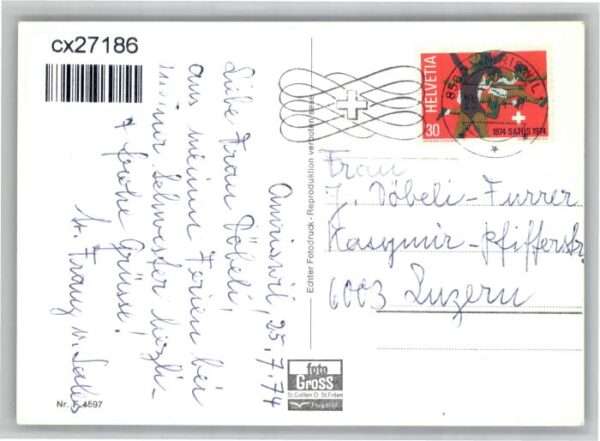 cx27186
Amriswil, 25.7.74
Liebe Frau Döbeli,
aus meinen Ferien bei
meiner Schwester herzli-
& frohe Grüsse!
Sr. Franz v. Sales
HELVETIA
30
1874 SATUS 1974
Frau
J. Döbeli-Furrer
Kasymir-Pfifferstr.
6003 Luzern
Echter Fotodruck - Reproduktion verboten
foto
Gross
St. Gallen
Nr. F 4597